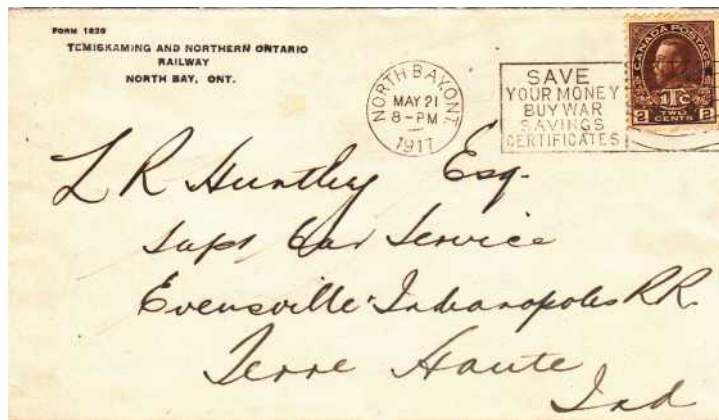 FORM 1826
TEMISKAMING AND NORTHERN ONTARIO
RAILWAY
NORTH BAY, ONT.
NORTH BAY, ONT.
MAY 21
8-PM
1917
SAVE
YOUR MONEY
BUY WAR
SAVINGS
CERTIFICATES
CANADA POSTAGE
1Tc
2 TWO CENTS 2
L R Huntley Esq.
Supt Car Service
Evensville & Indianapolis RR.
Terre Haute
Ind